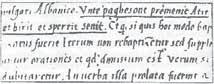 Vulgari Albanico. Unte paghesont premenit Atit
et birit et spertit senit. Et q. si quis hoc modo bap
natus fuerit Iterum non rebaptizetur sed supp
tur orationes et qd' dimissum est
dubitaretur. In verba illa prolata fuerint